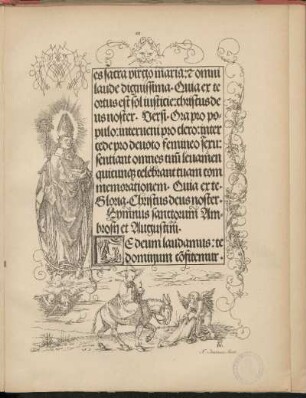 es sacra virgo maria: et omni
laude dignissima. Quia ex te
ortus est sol iusticie: christus de
us noster. Versi. Ora pro po
pulo: interueni pro clero: inter
cede pro deuoto femineo sexu:
sentiant omnes tuum leuamen
quicunque celebrant tuam com
memorationem. Quia ex te.
Gloria. Christus deus noster.
Hymnus sanctorum Am
brosii et Augustini.
Te deum laudamus: te
dominum confitemur.